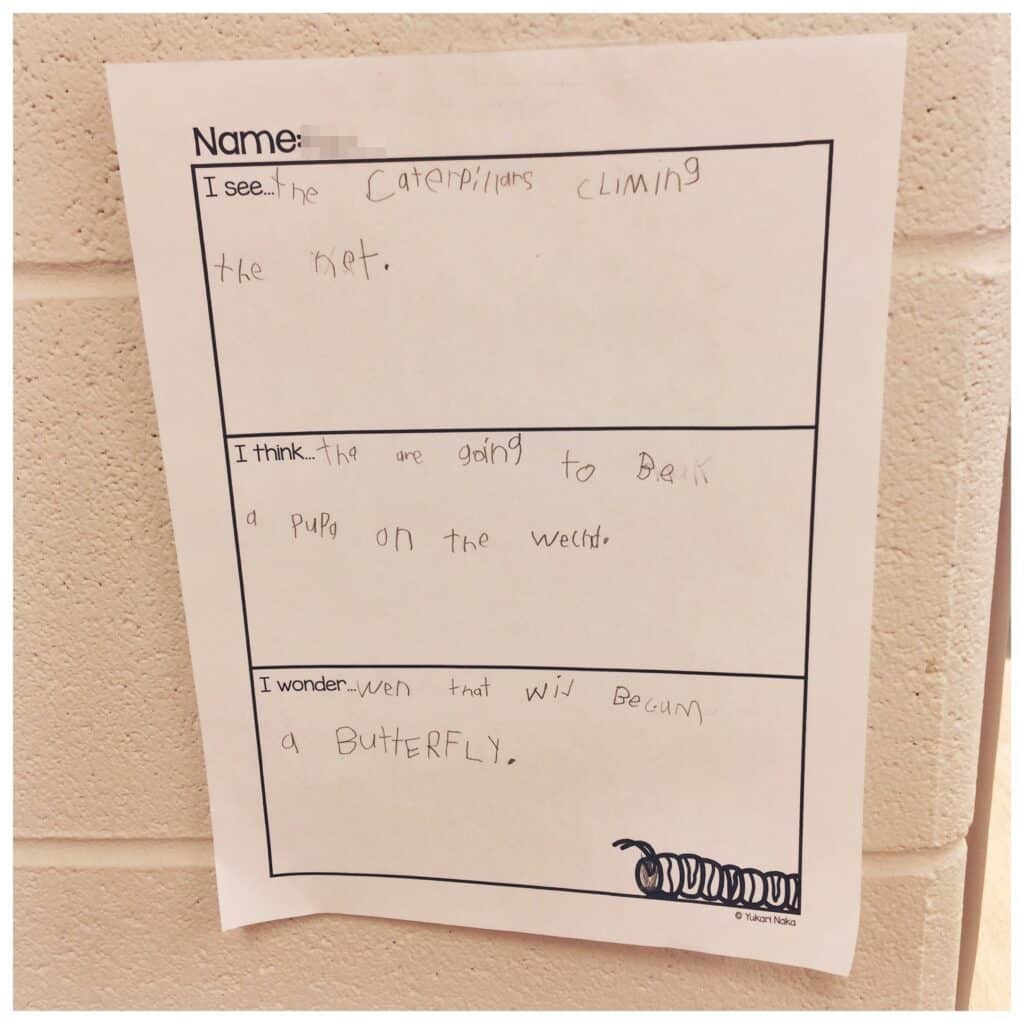 Name:
I see...the Caterpillars cLiMing
the net.
I think...tha are going to Be
a pupa on the
I wonder...wen that wil Becum
a ButtERFLY.
© Yukari Naka